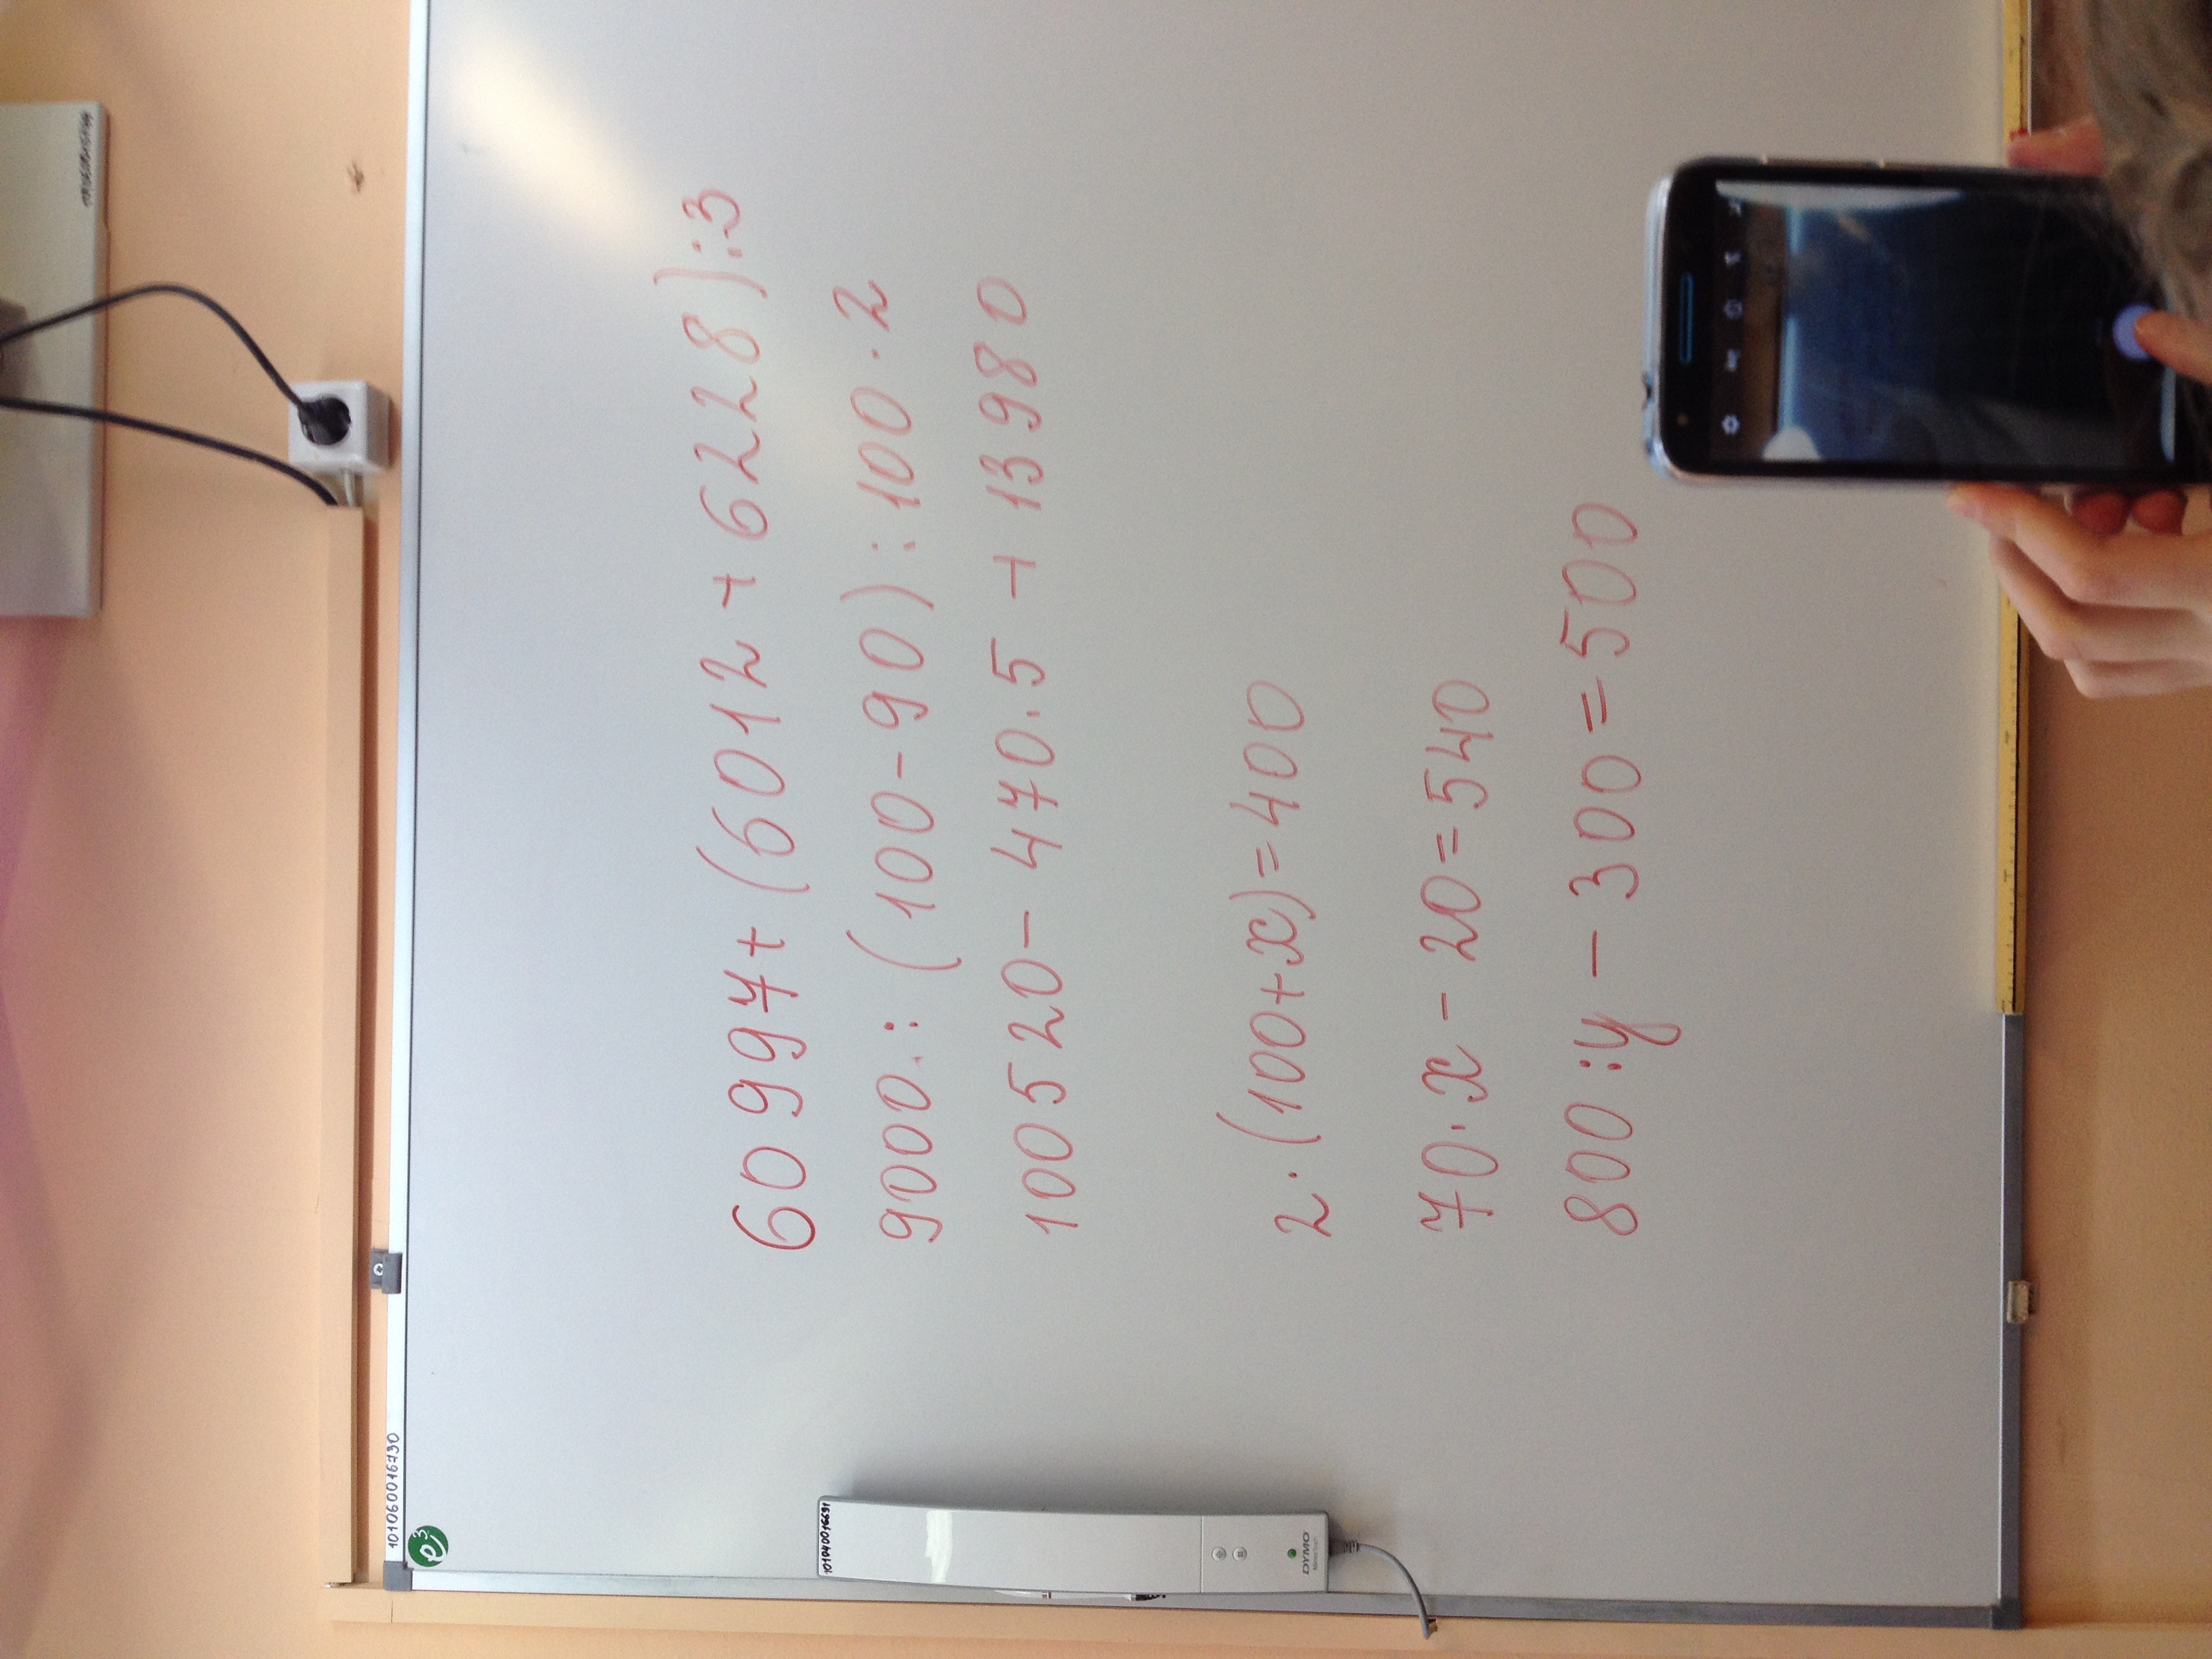 10106001б730
60997+(6012+6228):3
9000:(100-90):100·2
100520-470·5+13980
2·(100+x)=400
70·x-20=540
800:y-300=500
DYMO